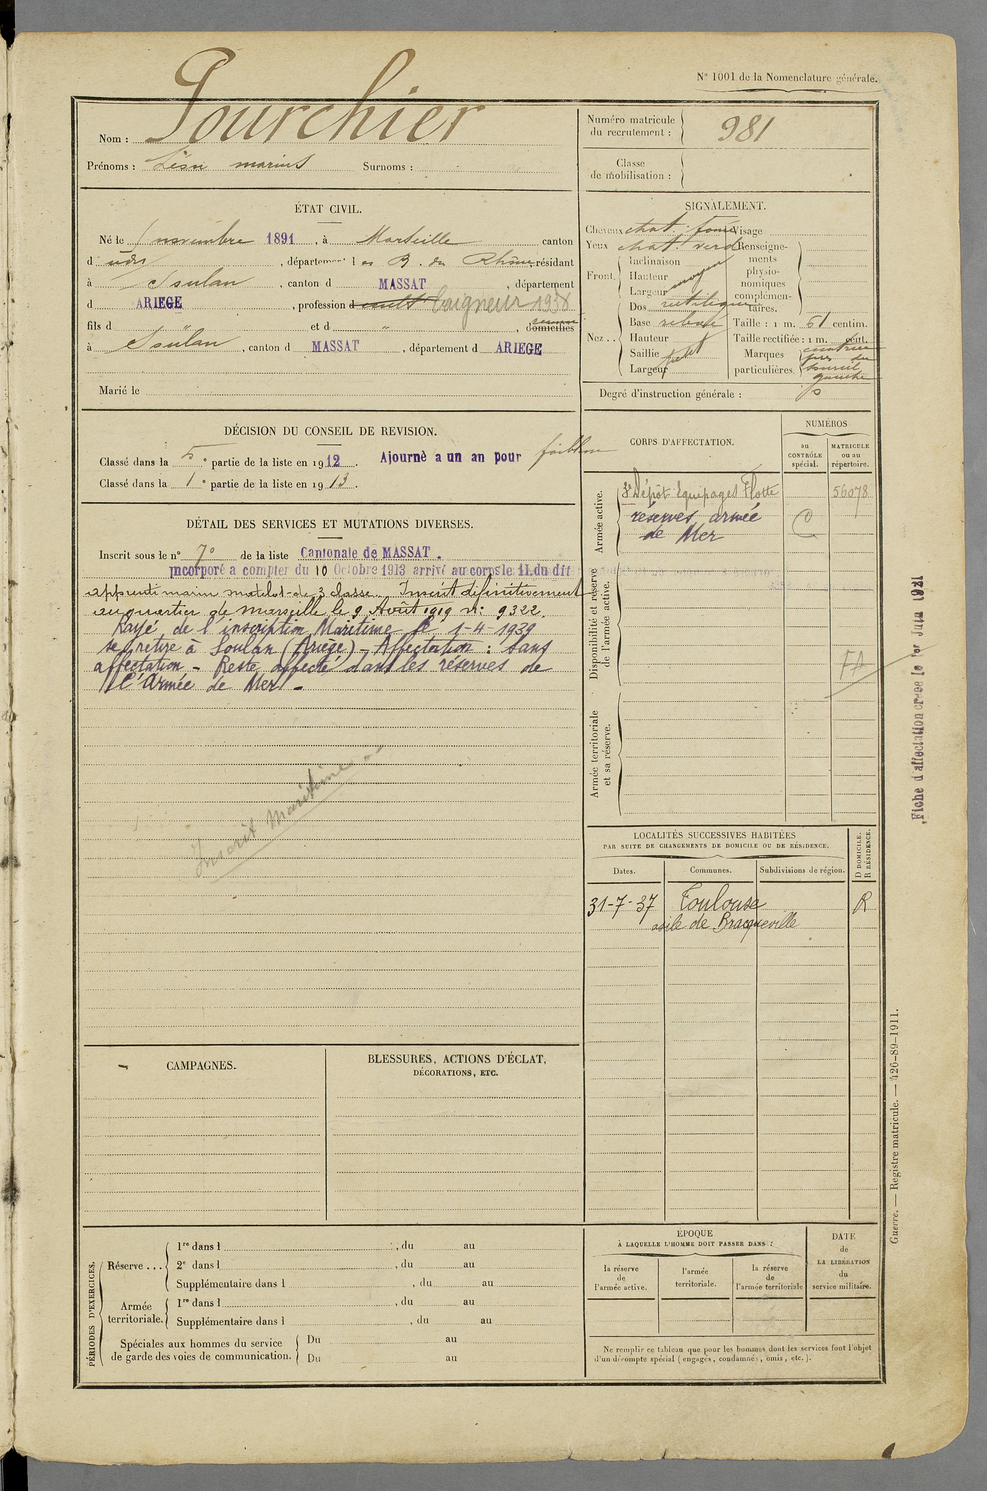 N° 1001 de la Nomenclature générale.
Nom : Pourchier
Prénoms : Léon marius Surnoms :
Numéro matricule du recrutement : 981
Classe de mobilisation :
ÉTAT CIVIL.
Né le novembre 1891, à Marseille canton
d udr, département des B. du Rhône résidant
à Soulan, canton d MASSAT, département
d ARIEGE, profession d cult baigneur 1938
fils d et d " , domiciliés
à Soulan, canton d MASSAT, département d ARIEGE
Marié le
SIGNALEMENT.
Cheveux chat. foncé Visage
Yeux chat. verd Renseignements physionomiques complémentaires.
Front. Inclinaison
Hauteur moyen
Largeur
Nez .. Dos rectiligne
Base relevée Taille : 1 m. 61 centim.
Hauteur Taille rectifiée : 1 m. cent.
Saillie petit Marques particulières. cicatrice près du sourcil gauche
Largeur
Degré d'instruction générale :
DÉCISION DU CONSEIL DE REVISION.
Classé dans la 5e partie de la liste en 1912. Ajourné a un an pour faiblesse
Classé dans la 1e partie de la liste en 1913.
CORPS D'AFFECTATION.
NUMÉROS
au CONTRÔLE spécial.
MATRICULE ou au répertoire.
Armée active.
5e Dépôt Equipages Flotte 56078
réserves armée
de Mer
Disponibilité et réserve de l'armée active.
FA
Armée territoriale et sa réserve.
DÉTAIL DES SERVICES ET MUTATIONS DIVERSES.
Inscrit sous le n° 7° de la liste Cantonale de MASSAT.
incorporé a compter du 10 Octobre 1913 arrivé au corps le 11 du dit
apprenti marin matelot de 3 classe. Inscrit définitivement
au quartier de marseille le 9 Août 1919 n°: 9322.
Rayé de l'inscription Maritime le 1-4-1939
se retire à Soulan (Ariège) - Affectation : Sans
affectation - Reste affecté dans les réserves de
l'Armée de Mer -
Inscrit Maritime
Fiche d'affectation créée le 1er Juin 1921
LOCALITÉS SUCCESSIVES HABITÉES
PAR SUITE DE CHANGEMENTS DE DOMICILE OU DE RÉSIDENCE.
Dates. Communes. Subdivisions de région. D DOMICILE. R RÉSIDENCE.
31-7-37 Toulouse R
asile de Bracqueville
CAMPAGNES.
BLESSURES, ACTIONS D'ÉCLAT,
DÉCORATIONS, ETC.
PÉRIODES D'EXERCICES.
Réserve ... 1re dans l , du au
2e dans l , du au
Supplémentaire dans l , du au
Armée territoriale. 1re dans l , du au
Supplémentaire dans l , du au
Spéciales aux hommes du service Du au
de garde des voies de communication. Du au
ÉPOQUE
À LAQUELLE L'HOMME DOIT PASSER DANS :
la réserve de l'armée active.
l'armée territoriale.
la réserve de l'armée territoriale
DATE de LA LIBÉRATION du service militaire.
Ne remplir ce tableau que pour les hommes dont les services font l'objet
d'un décompte spécial (engagés, condamnés, omis, etc.).
Guerre. — Registre matricule. — 426-89-1911.